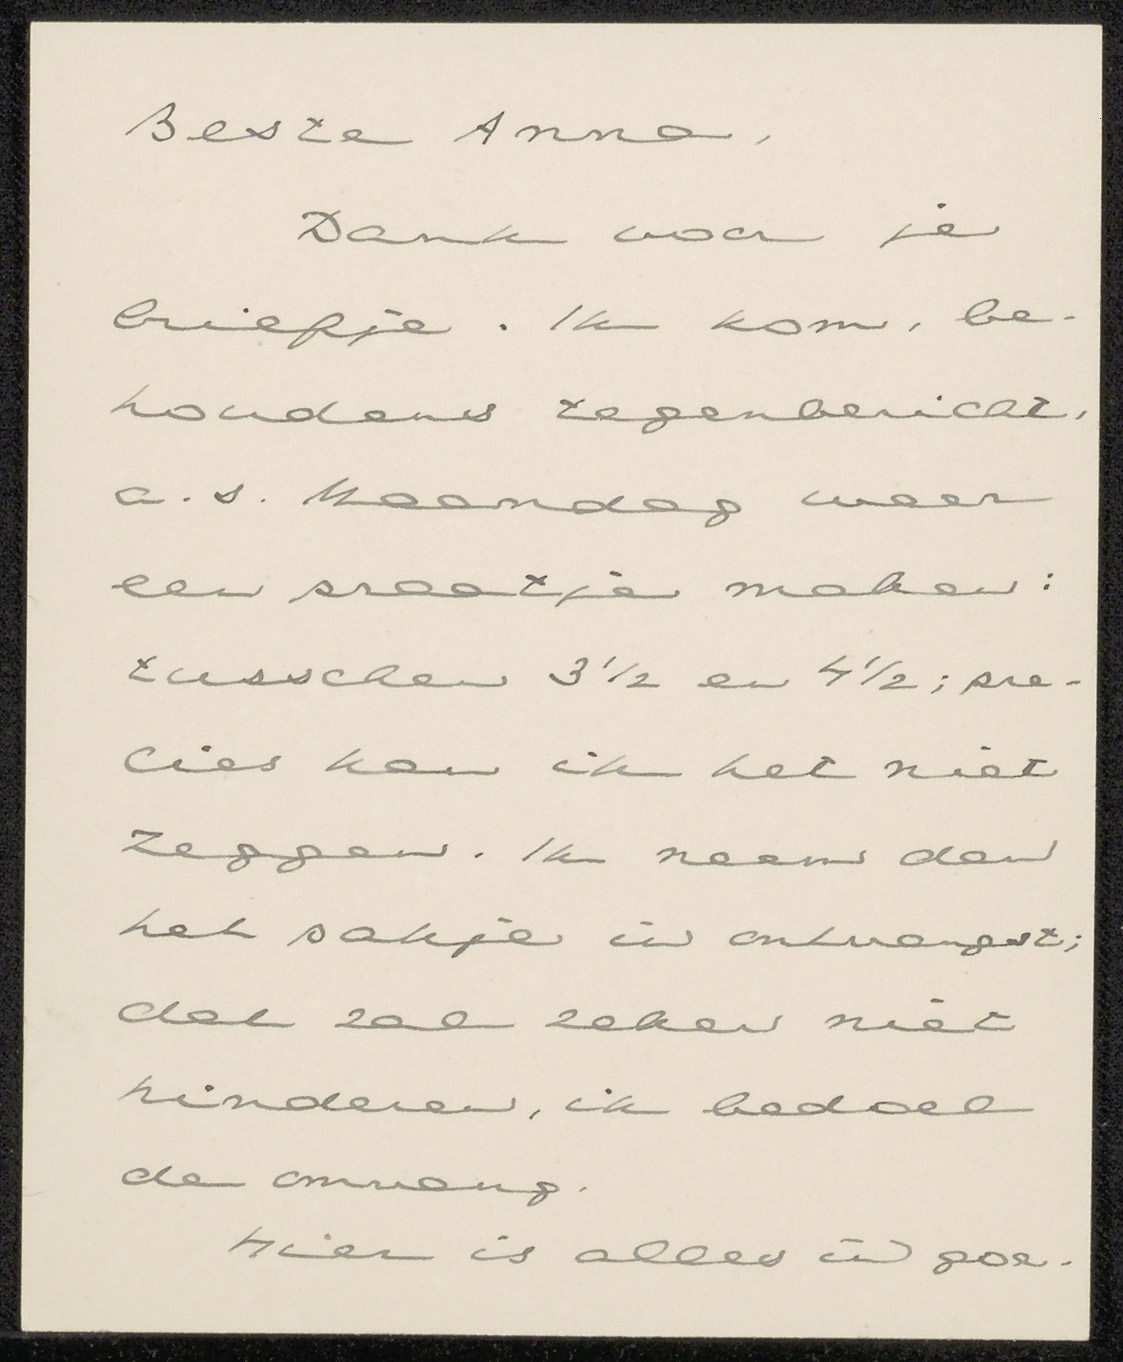 Beste Anna,
Dank voor je
briefje. Ik kom, be-
houdens tegenbericht,
a.s. Maandag weer
een praatje maken:
tusschen 3 1/2 en 4 1/2; pre-
cies kan ik het niet
zeggen. Ik neem dan
het pakje in ontvangst;
dat zal zeker niet
hinderen, ik bedoel
de omvang.
Hier is alles in goe-